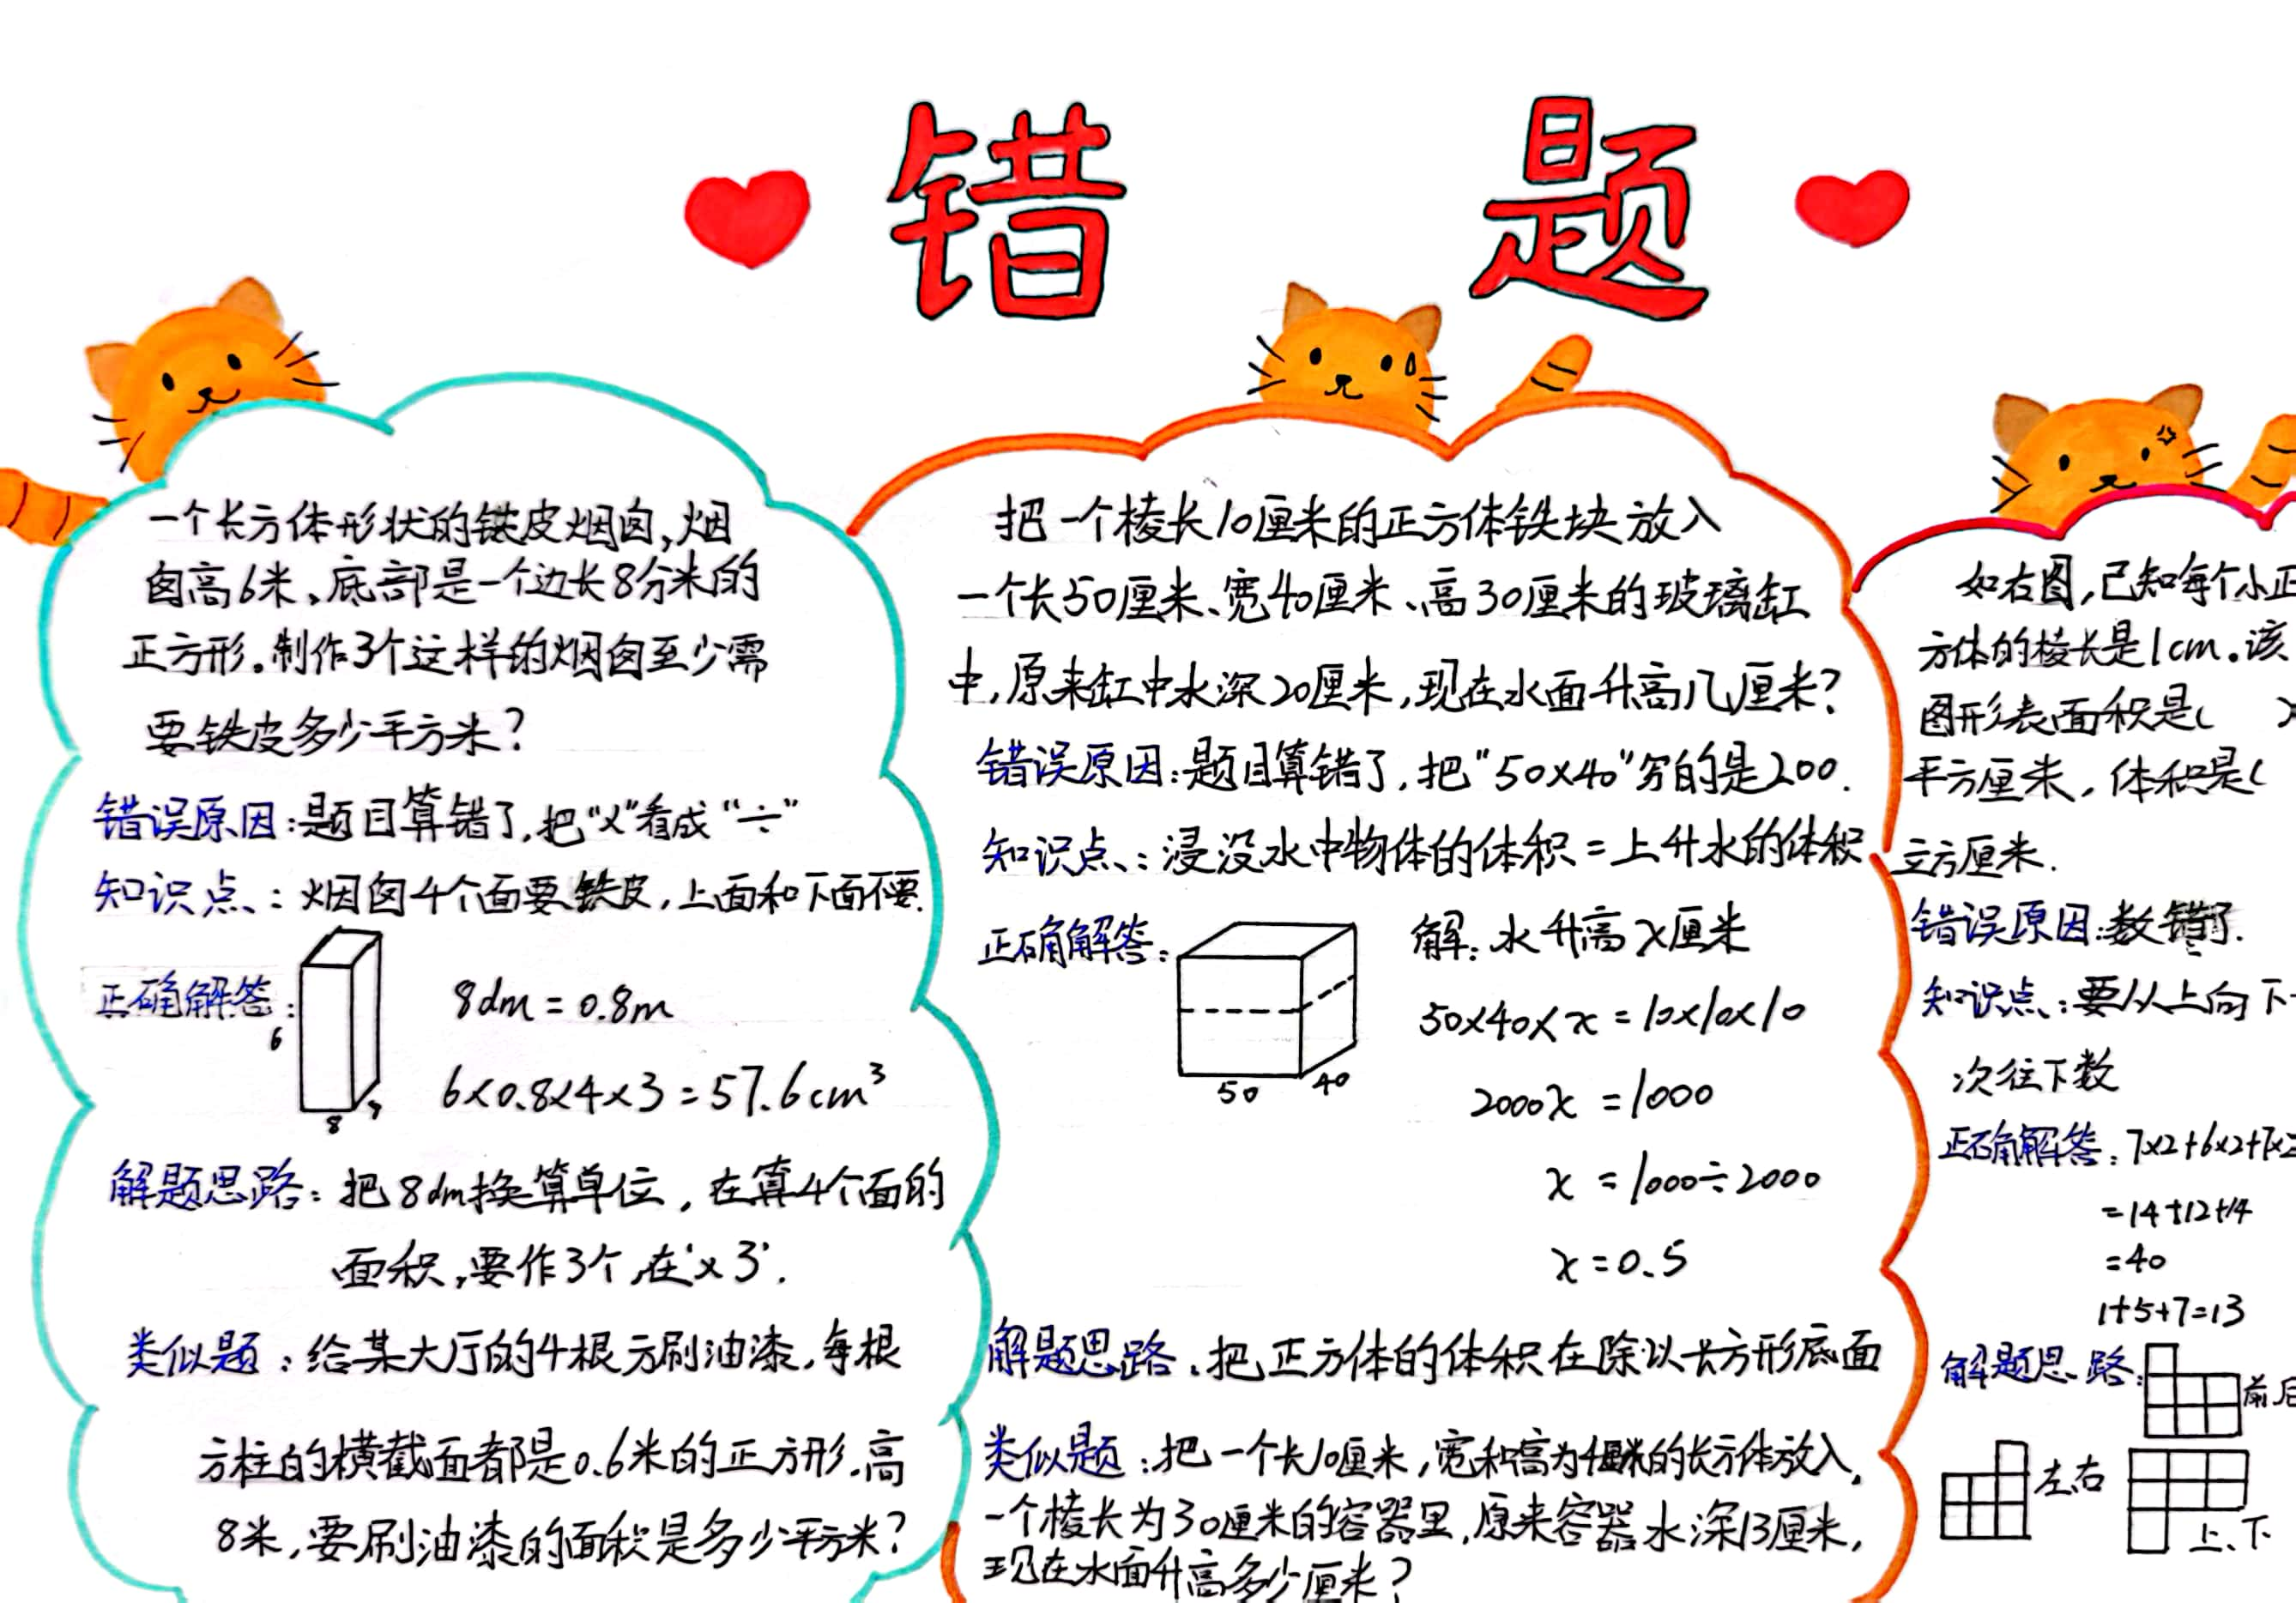 错 题
一个长方体形状的铁皮烟囱,烟
囱高6米、底部是一个边长8分米的
正方形。制作3个这样的烟囱至少需
要铁皮多少平方米?
错误原因:题目算错了,把“×”看成“÷”
知识点:烟囱4个面要铁皮,上面和下面不要.
正确解答:
6
8
8dm=0.8m
6×0.8×4×3=57.6cm³
解题思路:把8dm换算单位,在算4个面的
面积,要作3个,在‘×3’.
类似题:给某大厅的4根方刷油漆,每根
方柱的横截面都是0.6米的正方形.高
8米,要刷油漆的面积是多少平方米?
把一个棱长10厘米的正方体铁块放入
一个长50厘米、宽40厘米、高30厘米的玻璃缸
中,原来缸中水深20厘米,现在水面升高几厘米?
错误原因:题目算错了,把“50×40”的是200.
知识点:浸没水中物体的体积=上升水的体积
正确解答:
50
40
解:水升高x厘米
50×40×x=10×10×10
2000x=1000
x=1000÷2000
x=0.5
解题思路:把正方体的体积在除以长方形底面
类似题:把一个长10厘米,宽和高为的长方体放入
一个棱长为30厘米的容器里,原来容器水深13厘米,
现在水面升高多少厘米?
如右图,已知每个小正
方体的棱长是1cm。该
图形表面积是(
平方厘米,体积是(
立方厘米.
错误原因:数错了.
知识点:要从上向下
次往下数
正确解答:7×2+6×2+7×2
=14+12+14
=40
1+5+7=13
解题思路:
前后
左右
上、下